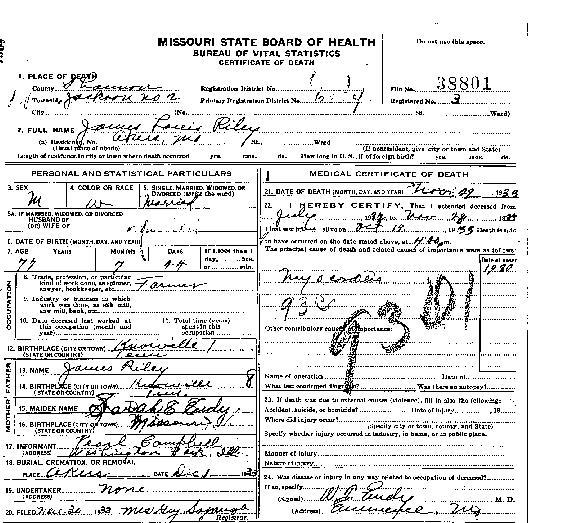 MISSOURI STATE BOARD OF HEALTH
Do not use this space.
BUREAU OF VITAL STATISTICS
CERTIFICATE OF DEATH
1. PLACE OF DEATH
County Shannon
Registration District No.
File No. 38801
Township Jackson no 2
Primary Registration District No.
Registered No. 3
City (No. St. Ward)
2. FULL NAME James Louis Riley
(a) Residence, No. Akers, Mo St. Ward
(Usual place of abode) (If nonresident, give city or town and State)
Length of residence in city or town where death occurred yrs. mos. ds. How long in U. S., if of foreign birth? yrs. mos. ds.
PERSONAL AND STATISTICAL PARTICULARS
3. SEX M
4. COLOR OR RACE W
5. SINGLE, MARRIED, WIDOWED, OR DIVORCED (write the word) Married
5A. IF MARRIED, WIDOWED, OR DIVORCED
HUSBAND OF
(OR) WIFE OF
6. DATE OF BIRTH (MONTH, DAY, AND YEAR)
7. AGE YEARS 77 MONTHS 7 DAYS If LESS than 1 day, hrs. or min.
OCCUPATION
8. Trade, profession, or particular kind of work done, as spinner, sawyer, bookkeeper, etc. Farmer
9. Industry or business in which work was done, as silk mill, saw mill, bank, etc.
10. Date deceased last worked at this occupation (month and year)
11. Total time (years) spent in this occupation
12. BIRTHPLACE (CITY OR TOWN) Knoxville
(STATE OR COUNTRY) Tenn
FATHER
13. NAME James Riley
14. BIRTHPLACE (CITY OR TOWN) Knoxville
(STATE OR COUNTRY) Tenn.
MOTHER
15. MAIDEN NAME Sarah E Eudy
16. BIRTHPLACE (CITY OR TOWN) Missouri
(STATE OR COUNTRY)
17. INFORMANT Pearl Campbell
(ADDRESS) Washington Ill.
18. BURIAL, CREMATION, OR REMOVAL
PLACE Akers DATE Dec 1 1933
19. UNDERTAKER None
(ADDRESS)
20. FILED Nov 30 1933 Mrs Guy
Registrar.
MEDICAL CERTIFICATE OF DEATH
21. DATE OF DEATH (MONTH, DAY, AND YEAR) Nov 29 1933
22. I HEREBY CERTIFY, That I attended deceased from
July to Nov 28 1933
I last saw h alive on Oct 17 1933 Death is said
to have occurred on the date stated above, at
The principal cause of death and related causes of importance were as follows:
Date of onset
Myocarditis 1930
93c
Other contributory causes of importance:
Name of operation Date of
What test confirmed diagnosis? Was there an autopsy?
23. If death was due to external causes (violence), fill in also the following:
Accident, suicide, or homicide? Date of injury , 19
Where did injury occur?
(Specify city or town, county, and State)
Specify whether injury occurred in industry, in home, or in public place.
Manner of injury
Nature of injury
24. Was disease or injury in any way related to occupation of deceased?
If so, specify
(Signed) Eudy M. D.
(Address) Eminence, Mo